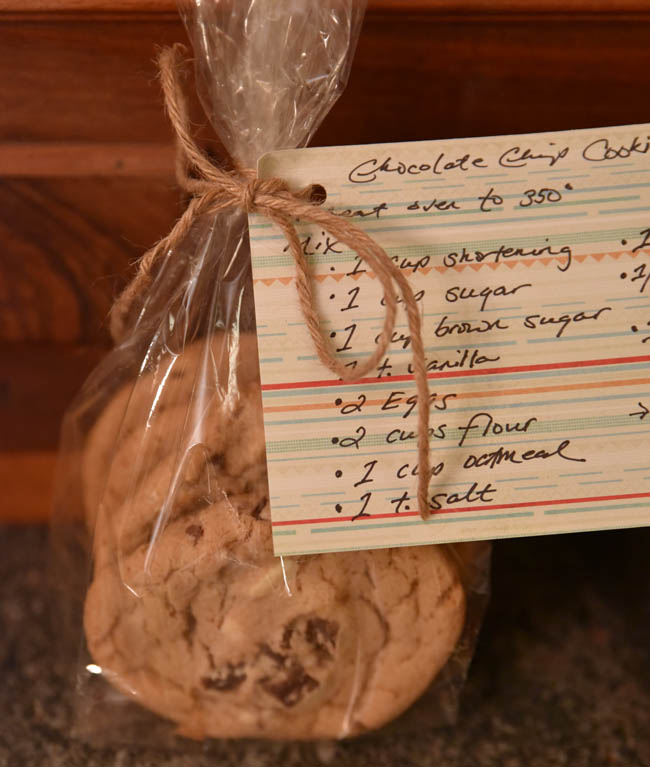 Chocolate Chip Cooki
eat oven to 350°
Mix
• 1 cup shortening • 1
• 1 cup sugar • 1/
• 1 cup brown sugar •
1 t. vanilla
• 2 Eggs
• 2 cups flour →
• 1 cup oatmeal
• 1 t. salt